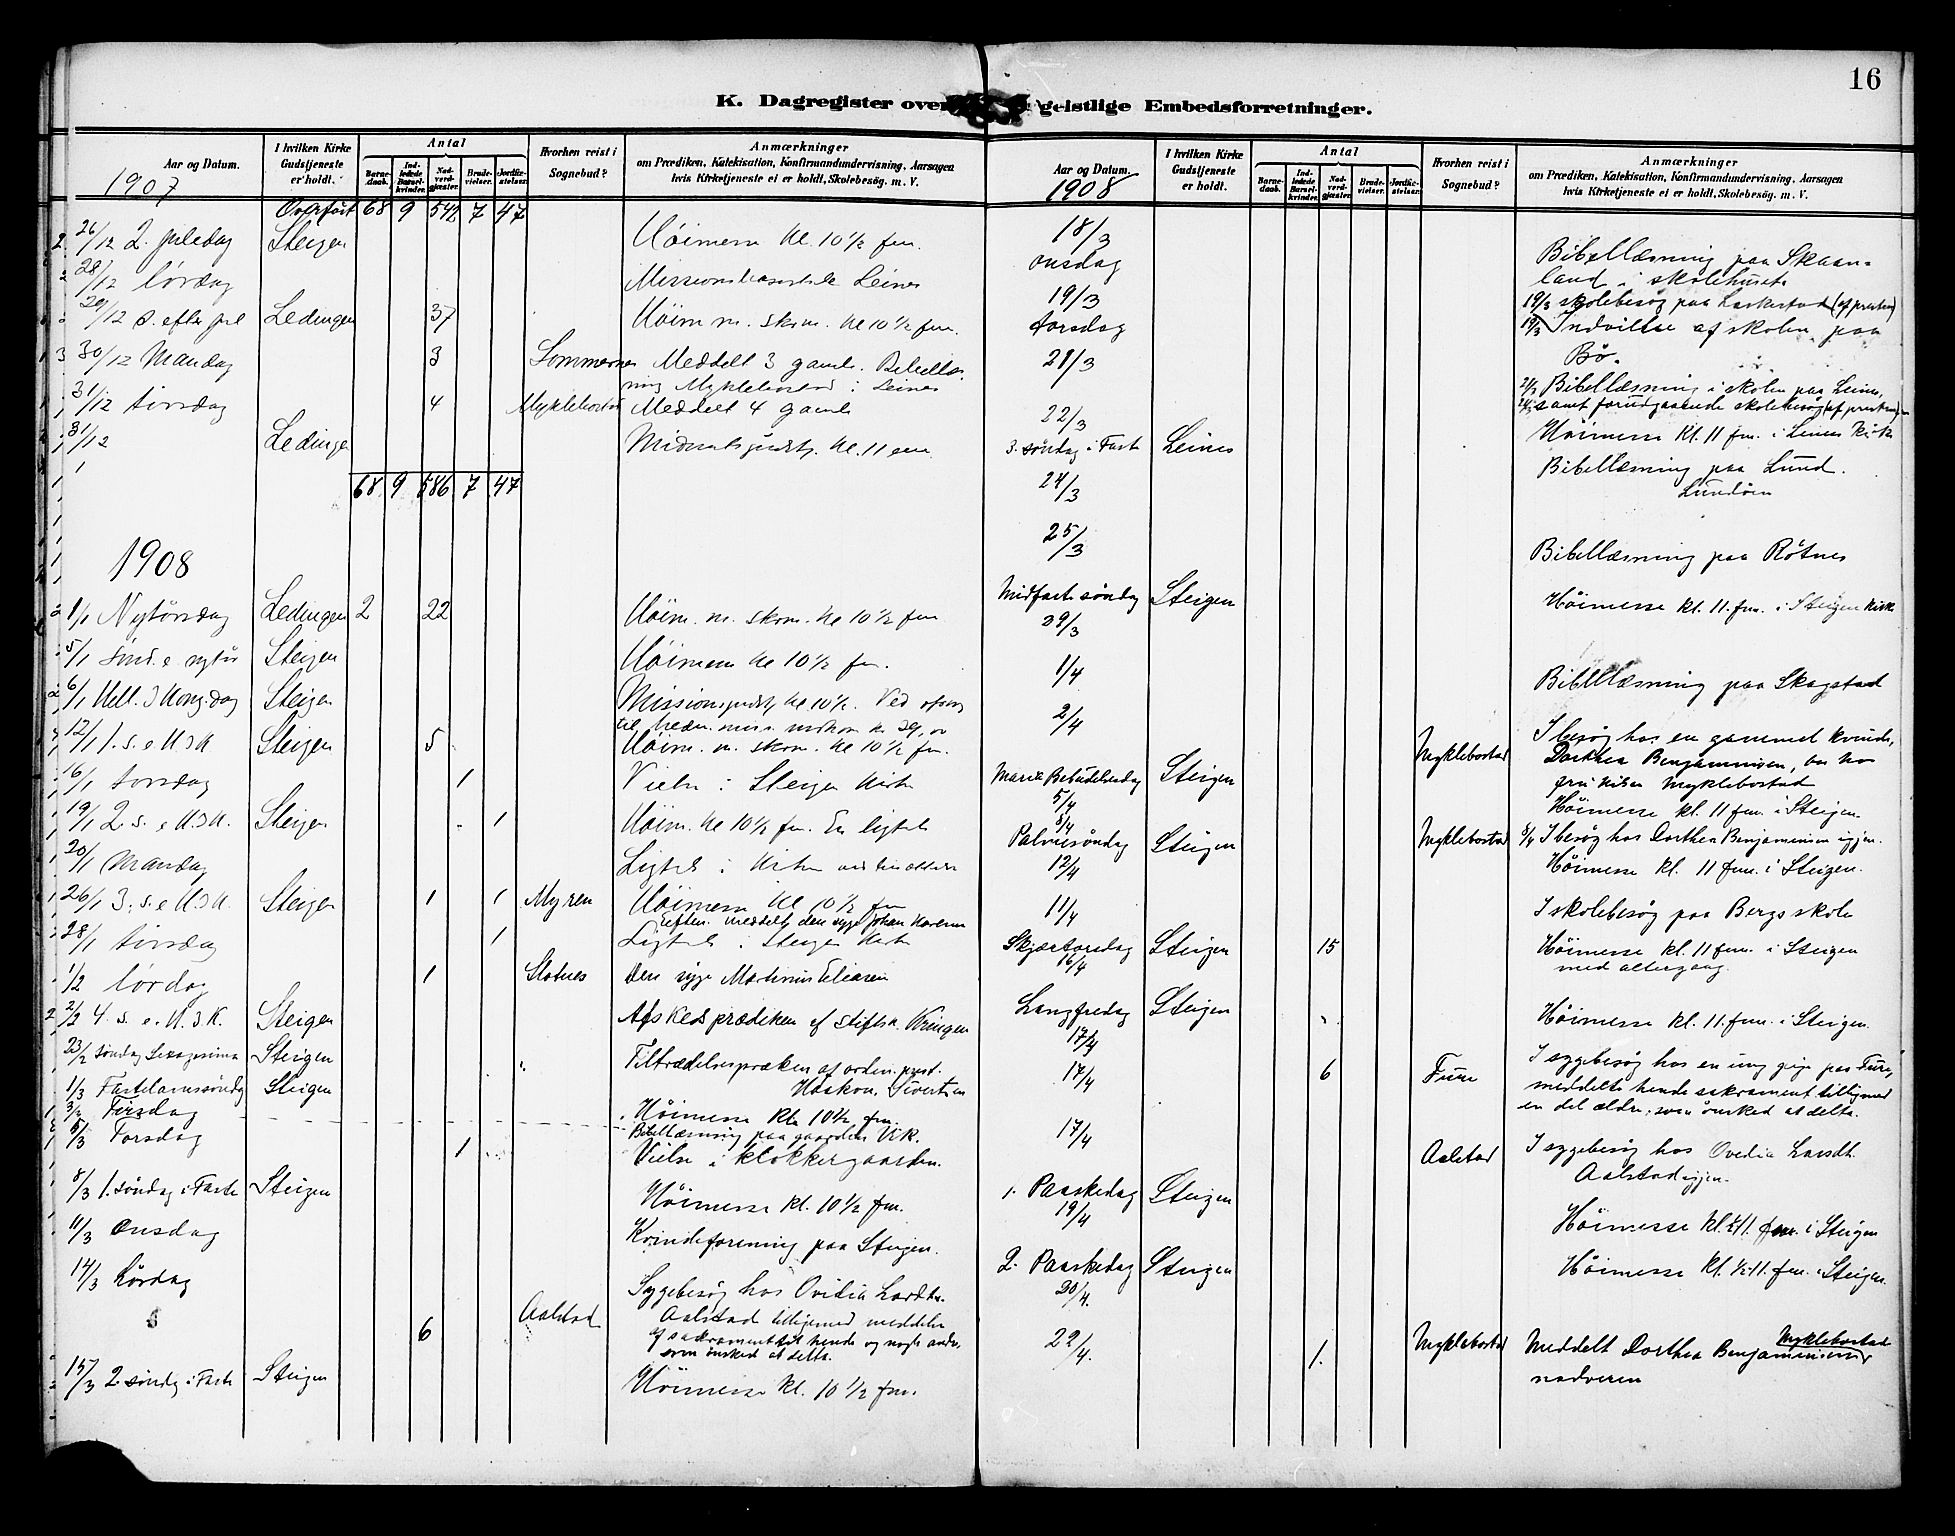 16
K. Dagregister over geistlige Embedsforretninger.
Aar og Datum.
1907
I hvilken Kirke Gudstjeneste er holdt.
Antal
Barnedaab.
Indledede Barselkvinder.
Nadverdgjæster.
Brudevielser.
Jordfæstelser.
Hvorhen reist i Sognebud?
Anmærkninger
om Prædiken, Katekisation, Konfirmandundervisning, Aarsagen
hvis Kirketjeneste ei er holdt, Skolebesøg. m. V.
Overført 68 9 542 7 47
26/12 2. juledag Steigen Höimesse kl. 10 1/2 fm.
28/12 lördag Leines
29/12 S. efter jul Ledingen 37 Höim m. skm. kl 10 1/2 fm.
30/12 Mandag 3 Meddelt 3 gamle.
Myklebostad i Leines
31/12 tirsdag 4 Myklebostad Meddelt 4 gamle
31/12 Ledingen kl. 11 em.
68 9 586 7 47
1908
1/1 Nytårsdag Ledingen 2 22 Höim. m. skm. kl 10 1/2 fm
5/1 Sönd. e. nytår Steigen Höimesse kl 10 1/2 fm.
6/1 Hell. 3 Kong. dag Steigen Missionsgudstj. kl 10 1/2. Ved
12/1 1. s. e. H3K Steigen 5 Höim. m. skm. kl 10 1/2 fm.
16/1 torsdag 1 Vielse i Steigen kirke
19/1 2. s. e. H3K. Steigen 1 Höim. kl 10 1/2 fm. En ligtale
20/1 Mandag Ligtale i kirken
26/1 3. s. e H3K. Steigen 1 1 Myren Höimesse kl 10 1/2 fm
Eftm. meddelt den syge Johan
28/1 tirsdag 1 Ligtale i Steigen kirke
1/2 lördag 1 Slotnes Den syge Martinus Eliasen
2/2 4. s. e. H.3.K. Steigen Afskedsprædiken af stiftsk. Kringen
23/2 Söndag Sexagesima Steigen Tiltrædelsespræken af orden. prest.
Haakon Sivertsen
1/3 Fastelavnssöndag Steigen Höimesse kl. 10 1/2 fm.
3/3 Tirsdag Bibellæsning paa gaarden Vik.
5/3 Torsdag 1 Vielse i klokkergaarden.
8/3 1. söndag i Faste Steigen Höimesse kl. 10 1/2 fm.
11/3 Onsdag Kvindeforening paa Steigen.
14/3 Lördag Sygebesög hos Ovidia Lardh.
6 Aalstad Aalstad tilligemed meddelse
af sakramentet til hende og nogle andre
som önsked at delta.
15/3 2. söndag i Faste Steigen Höimesse kl. 10 1/2 fm.
Aar og Datum.
1908
I hvilken Kirke Gudstjeneste er holdt.
Antal
Barnedaab.
Indledede Barselkvinder.
Nadverdgjæster.
Brudevielser.
Jordfæstelser.
Hvorhen reist i Sognebud?
Anmærkninger
om Prædiken, Katekisation, Konfirmandundervisning, Aarsagen
hvis Kirketjeneste ei er holdt, Skolebesøg. m. V.
18/3 onsdag Bibellæsning paa Skaanland i skolehuset
19/3 torsdag 19/3 skolebesög paa Laskestad (af presten)
19/3 Indvielse af skolen paa Bö.
21/3 21/3 Bibellæsning i skolen paa Leines,
samt forudgaaende skolebesög (af presten)
22/3 3. söndag i Faste Leines Höimesse kl. 11 fm. i Leines kirke
24/3 Bibellæsning paa Lund. Lundöen
25/3 Bibellæsning paa Rötnes
Midfaste söndag 29/3 Steigen Höimesse kl. 11. fm. i Steigen kirke
1/4 Bibellæsning paa Skagstad
2/4 Myklebostad I besög hos en gammel kvinde,
Dorthea Benjaminsen,
Myklebostad
Mariæ Bebudelsesdag 5/4 Steigen Höimesse kl. 11 fm. i Steigen.
8/4 Myklebostad 8/4 I besög hos Dorthea Benjaminsen igjen.
Palmesöndag 12/4 Steigen Höimesse kl. 11 fm. i Steigen.
11/4 I skolebesög paa Bergs skole
Skjærtorsdag 16/4 Steigen 15 Höimesse kl. 11 fm. i Steigen
med altergang.
Langfredag 17/4 Steigen Höimesse kl. 11. fm. i Steigen.
17/4 6 Fure I sygebesög hos en ung pige paa Fure,
meddelte hende sakrament tilligemed
en del ældre, som önsked at delta.
17/4 Aalstad I sygebesög hos Ovedia Lardh.
Aalstad igjen.
1. Paaskedag 19/4 Steigen Höimesse kl. 11. fm. i Steigen
2. Paaskedag 20/4. Steigen Höimesse kl. 1/2 11. fm. i Steigen.
22/4. 1. Myklebostad Meddelt Dorthea Benjaminsen Myklebostad
nadveren